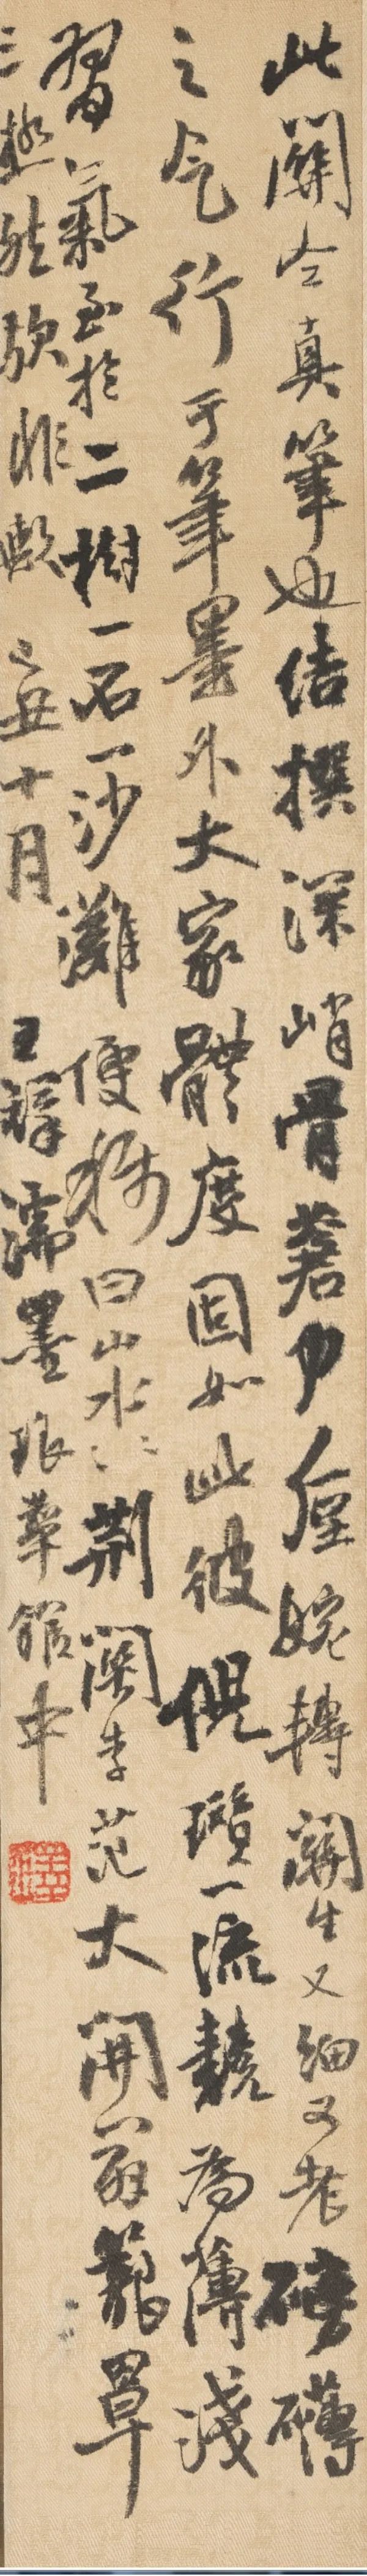 此關仝真筆也結撰深峭骨蒼力厓婉轉關生又細又老磅礴
之气行于筆墨外大家體度固如此彼倪瓚一流競為薄淺
習氣至於二樹一石一沙灘便稱曰山水山水荆關李范大開翁籠罩
三極然歟非歟 乙丑十月 王鐸濡墨琅華館中